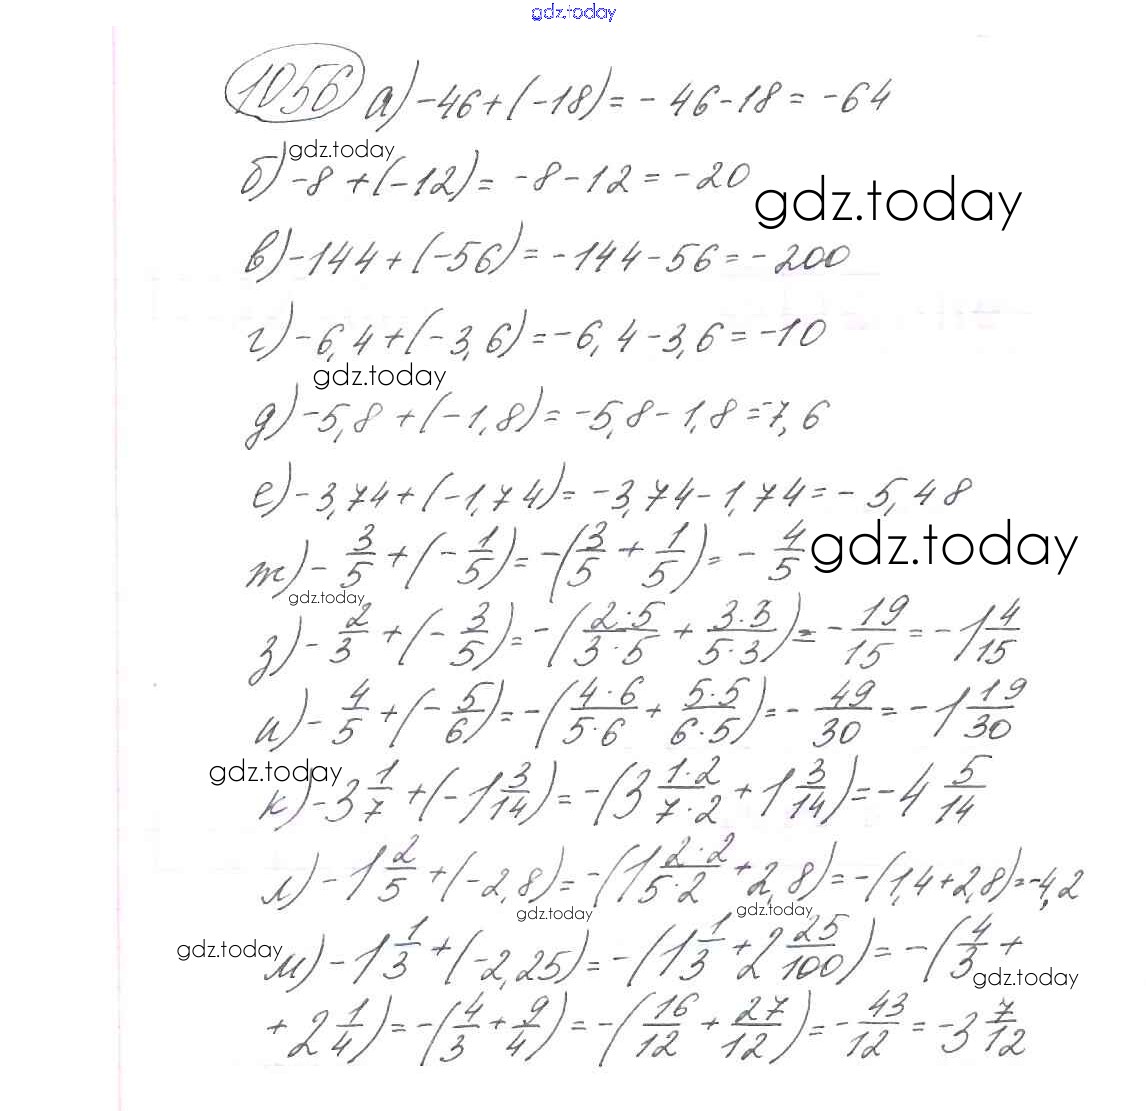 gdz.today
1056 а) -46+(-18)= -46-18= -64
gdz.today
б) -8+(-12)= -8-12= -20
gdz.today
в) -144+(-56)= -144-56= -200
г) -6,4+(-3,6)= -6,4-3,6= -10
gdz.today
д) -5,8+(-1,8)= -5,8-1,8=-7,6
е) -3,74+(-1,74)= -3,74-1,74= -5,48
ж) -3/5+(-1/5)= -(3/5+1/5)= -4/5
gdz.today
gdz.today
з) -2/3+(-3/5)= -(2·5/3·5+3·3/5·3)= -19/15= -1 4/15
и) -4/5+(-5/6)= -(4·6/5·6+5·5/6·5)= -49/30= -1 19/30
gdz.today
к) -3 1/7+(-1 3/14)= -(3 1·2/7·2+1 3/14)= -4 5/14
л) -1 2/5+(-2,8)= -(1 2·2/5·2+2,8)= -(1,4+2,8)=-4,2
gdz.today
gdz.today
gdz.today
м) -1 1/3+(-2,25)= -(1 1/3+2 25/100)= -(4/3+
gdz.today
+2 1/4)= -(4/3+9/4)= -(16/12+27/12)= -43/12= -3 7/12